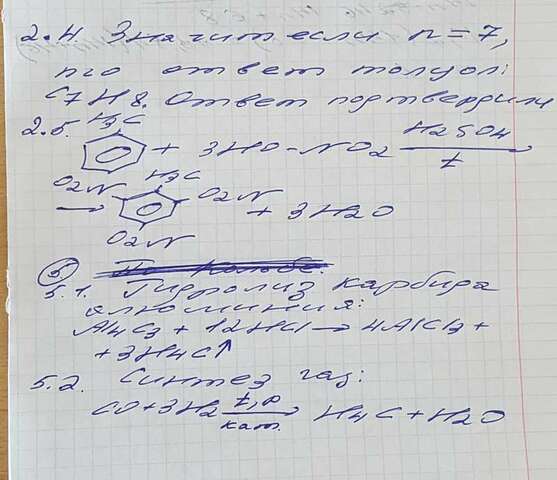 2.4 Значит если n = 7,
то ответ толуол:
C7H8. Ответ подтвердили
2.5. H3C
+ 3HO-NO2 H2SO4 t
→ O2N H3C O2N O2N + 3H2O
⑤ По Кольбе.
5.1. Гидролиз карбида
алюминия:
Al4C3 + 12HCl → 4AlCl3 +
+ 3H4C↑
5.2. Синтез газ:
CO + 3H2 t, p кат. → H4C + H2O